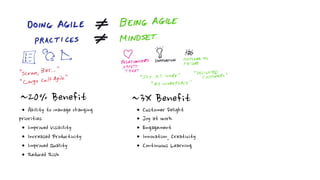 DOING AGILE ≠ BEING AGILE
PRACTICES ≠ MINDSET
RELATIONSHIPS
SAFETY
TRUST
INNOVATION
RESPONSE TO
FAILURE
"Scrum, Ban..."
"Cargo Cult Agile"
"JOY AT WORK"
"DELIGHTED
CUSTOMERS"
~20% Benefit
• Ability to manage changing
priorities
• Improved Visibility
• Increased Productivity
• Improved Quality
• Reduced Risk
~3X Benefit
• Customer Delight
• Joy at work
• Engagement
• Innovation, Creativity
• Continuous Learning